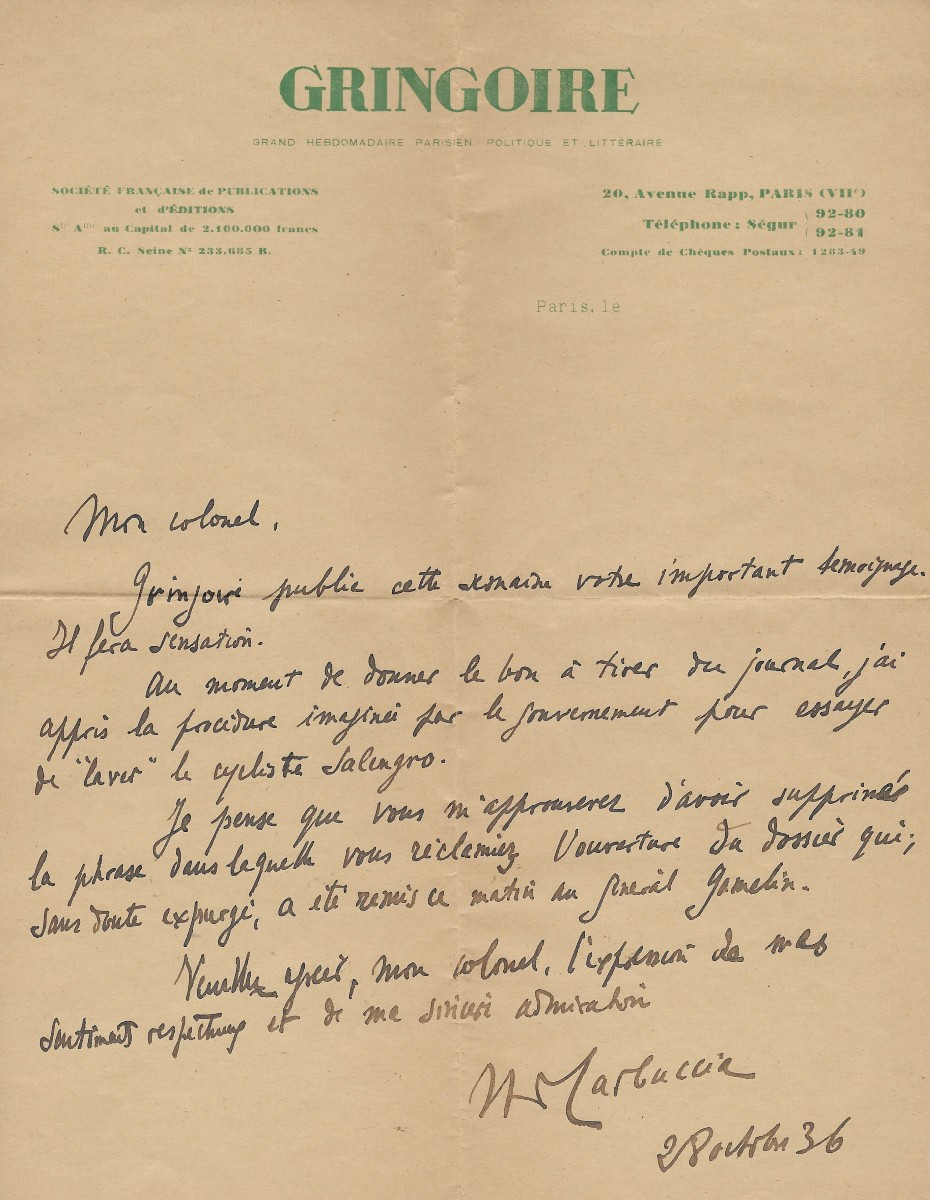 GRINGOIRE
GRAND HEBDOMADAIRE PARISIEN, POLITIQUE ET LITTÉRAIRE
SOCIÉTÉ FRANÇAISE de PUBLICATIONS
et d'ÉDITIONS
Sté Ame au Capital de 2.100.000 francs
R. C. Seine No 233.685 B.
20, Avenue Rapp, PARIS (VIIe)
Téléphone : Ségur 92-80
92-81
Compte de Chèques Postaux : 1283-49
Paris, le
Mon colonel,
Gringoire publie cette semaine votre important témoignage.
Il fera sensation.
Au moment de donner le bon à tirer du journal, j'ai
appris la procédure imaginée par le gouvernement pour essayer
de "laver" le cycliste Salengro.
Je pense que vous m'approuverez d'avoir supprimée
la phrase dans laquelle vous réclamiez l'ouverture du dossier qui,
sans doute expurgé, a été remis ce matin au général Gamelin.
Veuillez agréer, mon colonel, l'expression de mes
sentiments respectueux et de ma sincère admiration
H de Carbuccia
28 octobre 36